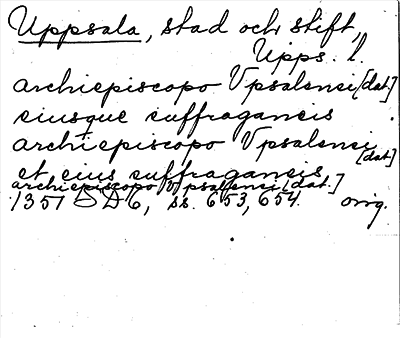 Uppsala, stad och stift,
Upps. l.
archiepiscopo Vpsalensi [dat.]
eiusque suffraganeis
archiepiscopo Vpsalensi
[dat]
et eius suffraganeis
archiepiscopo Vpsalensi [dat.]
1351 SDC, ss. 653, 654. orig.